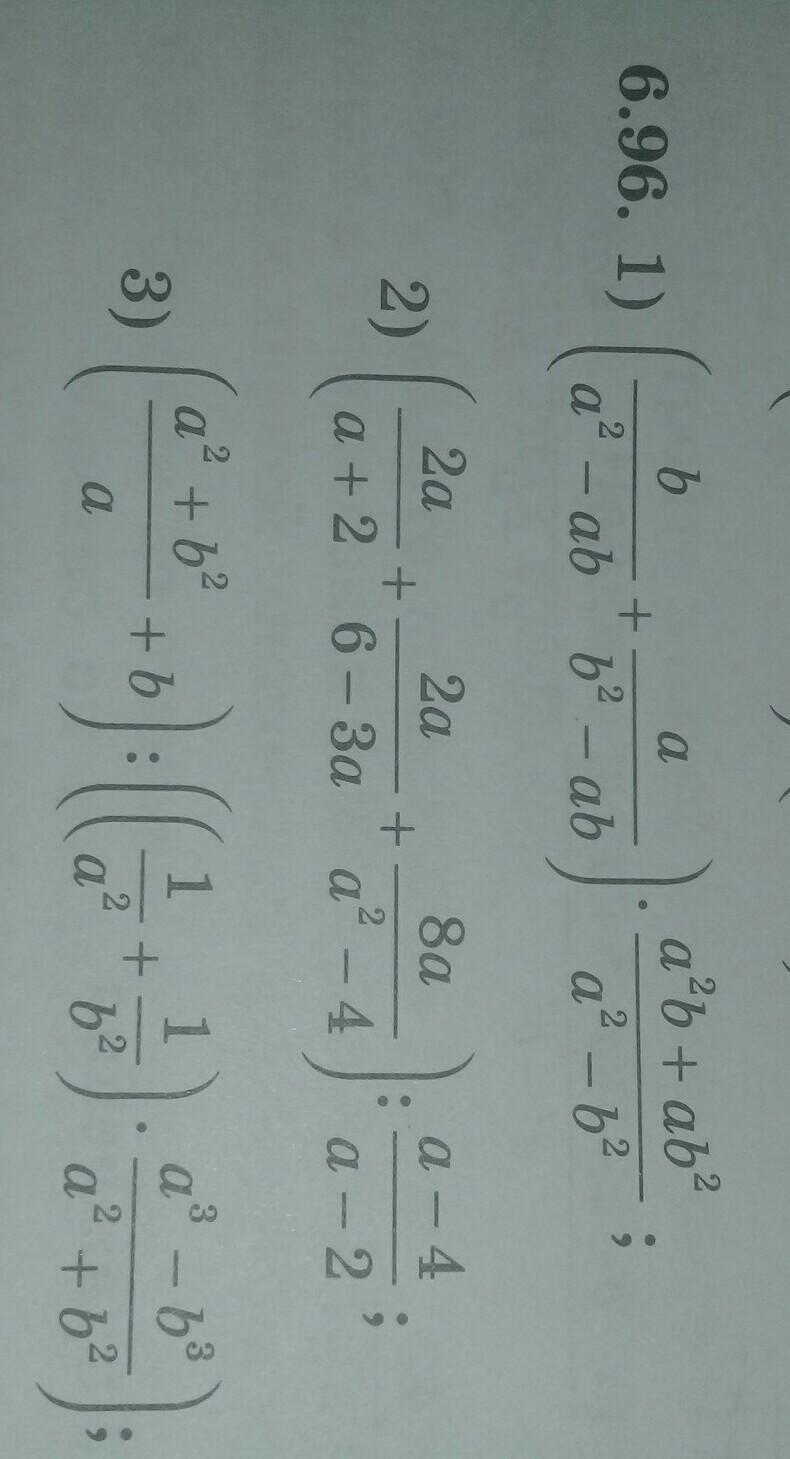 6.96. 1) (b/(a² − ab) + a/(b² − ab)) · (a²b + ab²)/(a² − b²);
2) (2a/(a + 2) + 2a/(6 − 3a) + 8a/(a² − 4)) : (a − 4)/(a − 2);
3) ((a² + b²)/a + b) : ((1/a² + 1/b²) · (a³ − b³)/(a² + b²));